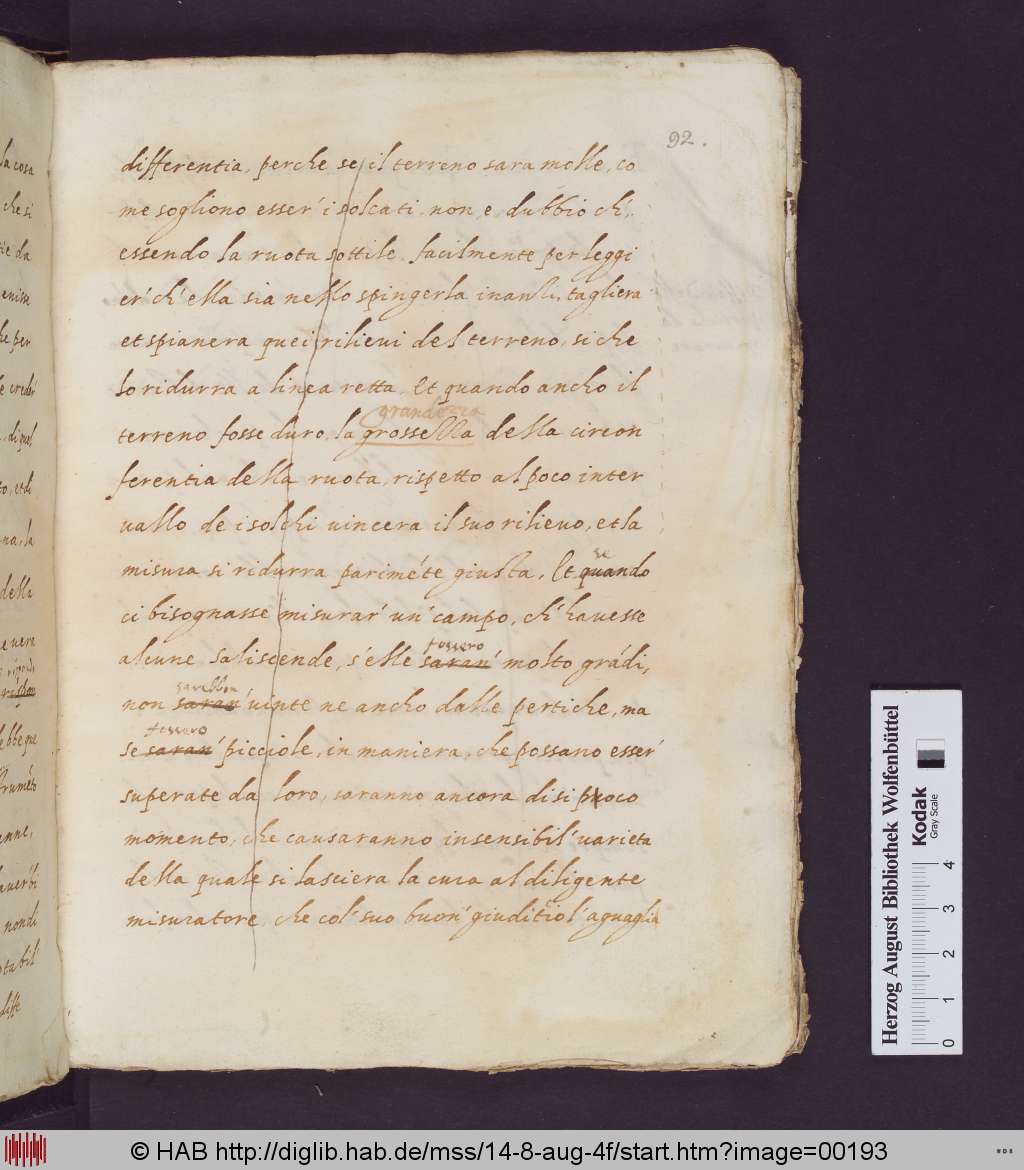 92.
differentia, perche se il terreno sara molle, co
me sogliono esser' i solcati, non e dubbio ch',
essendo la ruota sottile, facilmente per leggi
er' ch' ella sia nello spingerla inanti, tagliera
et spianera quei rilievi del terreno, si che
lo ridurra a linea retta. Et quando ancho il
grandezza
terreno fosse duro, la grossezza della circon
ferentia della ruota, rispetto al poco inter
vallo de i solchi vincera il suo rilievo, et la
misura si ridurra pariméte giusta. Et quando
se
ci bisognasse misurar' un' campo, ch' havesse
alcune saliscende, s' elle saran' molto grádi,
fossero
non saran' vinte ne ancho dalle pertiche, ma
sarebbon
se saran' picciole, in maniera, che possano esser'
fossero
superate da loro, saranno ancora di si poco
momento, che causaranno insensibil' varieta
della quale si lasciera la cura al diligente
misuratore, che col' suo buon' giuditio l' aguaglia
la cosa
che si
da
he per
di qual
to, et di
na, la
della
nondi
diffe
Herzog August Bibliothek Wolfenbüttel
Kodak
Gray Scale
0 1 2 3 4
© HAB http://diglib.hab.de/mss/14-8-aug-4f/start.htm?image=00193